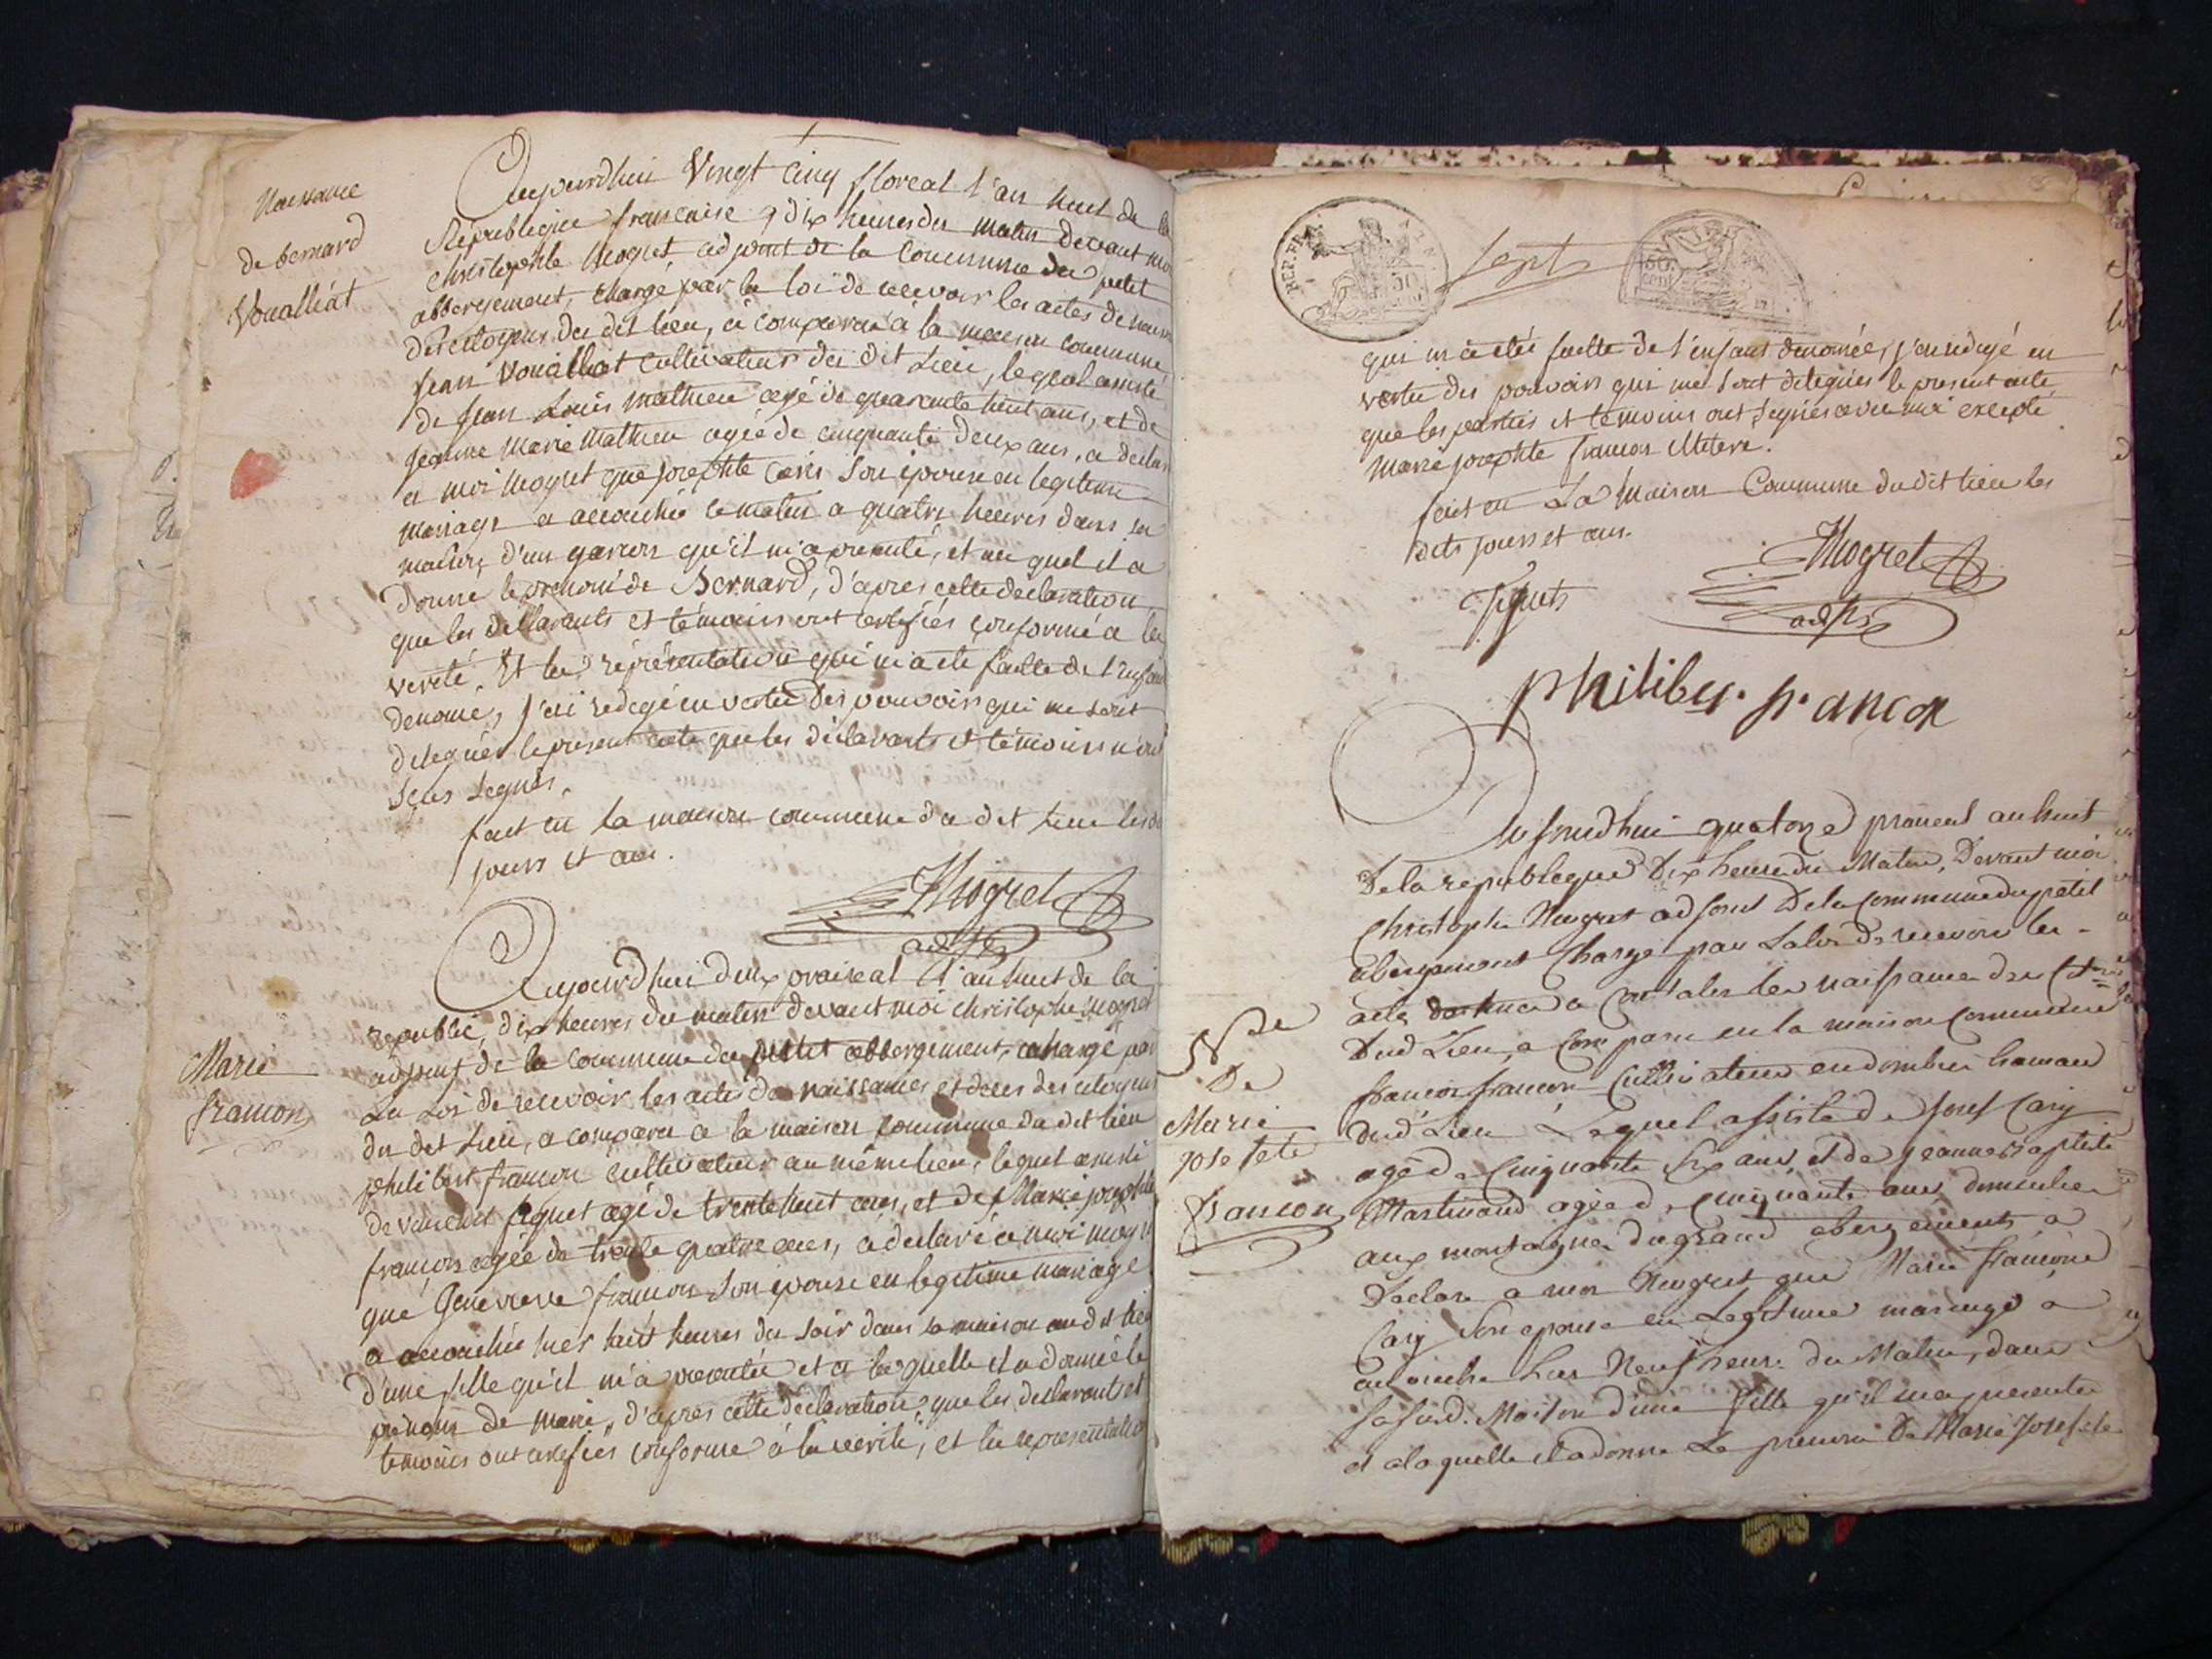 Naissance
de bernard
Voualliat
Aujourdhui Vingt Cinq floreal l'an huit de la
Republique francaise a dix heures du matin devant moi
christophle Mogret adjoint de la Commune du petit
abbergement, chargé par la loi de recevoir les actes de
des citoyens du dit lieu, à comparu à la maison commune
jean Vouailliat cultivateur du dit Lieu, lequel assisté
de jean Louis mathieu agé de quarante huit ans, et de
jeanne Marie Mathieu agée de cinquante deux ans, a
a moi Mogret que josephte Caris son épouse en legitime
mariage a accouchée ce matin a quatre heures dans sa
maison d'un garcon qu'il m'a presenté, et au quel il a
donne le prenom de Bernard, d'apres cette declaration
que les dellarents et temoins ont certifiés conforme a la
verité. Et la représentation qui m'a eté faitte de l'enfant
denomé, j'ai redegé en vertu des pouvoirs qui me sont
delegués le present acte que les déclarants et témoins n'ont
sçus signés.
fait en la maison commune du dit lieu les
jours et an.
Mogret
adjt
Marie
francon
Aujourdhui deux praireal l'an huit de la
republic, dix heures du matin devant moi christophe Mogret
adjoint de la Commune du petit abbergement, chargé par
La Loi de recevoir les actes de naissances et deces des citoyens
du dit Lieu, a comparu a la maison commune du dit lieu
philibert francon cultivateur au même lieu, lequel assisté
de vincent figuet agé de trente huit ans, et de Marie josephte
francon agée de trente quatre ans, a déclaré a moi mogret
que Genevieve francon son épouse en legitime mariage
a accouchée hier huit heures du soir dans sa maison au dit lieu
d'une fille qu'il m'a presentée et a laquelle il a donnée le
prénom de marie, d'apres cette déclaration que les declarants et
temoins ont certifiés conforme à la verité, et la representation
REP. FRA.
sept
50
cent
qui m'a etée faitte de l'enfant denomée, j'ai redigé en
vertu des pouvoirs qui me sont delegués le present acte
que les parties et témoins ont signés avec moi excepté
Marie josephte francon
fait en La Maison Commune du dit lieu les
dits jours et ans.
Figuet
Mogret
adjt
philiber francon
Ne
De
Marie
jo se fete
francon
Aujourdhui quatorze prairial an huit
De la republeque Dix heure du Matin, Devant moi
Christophe Mogret adjoint De la Commune du petit
abergement Chargé par La loi De recevoir les
acte a Constater les naissance des
Dud Lieu, a Comparu en la maison Commune
francois francon Cultivateur
dud Lieu Lequel assisté de Josef Carij
agé de Cinquante six ans, et de jeanne Baptiste
Martinand agée de cinquante ans domicilié
aux montagnes du grand abergement a
Declare a moi Mogret que Marie francoise
Carij Son epouse en Legitime mariage a
accouche hier Neuf heure du Matin, dans
Maison d'une fille qu'il ma presentée
et a laquelle il a donne Le prenom De Marie Josefete